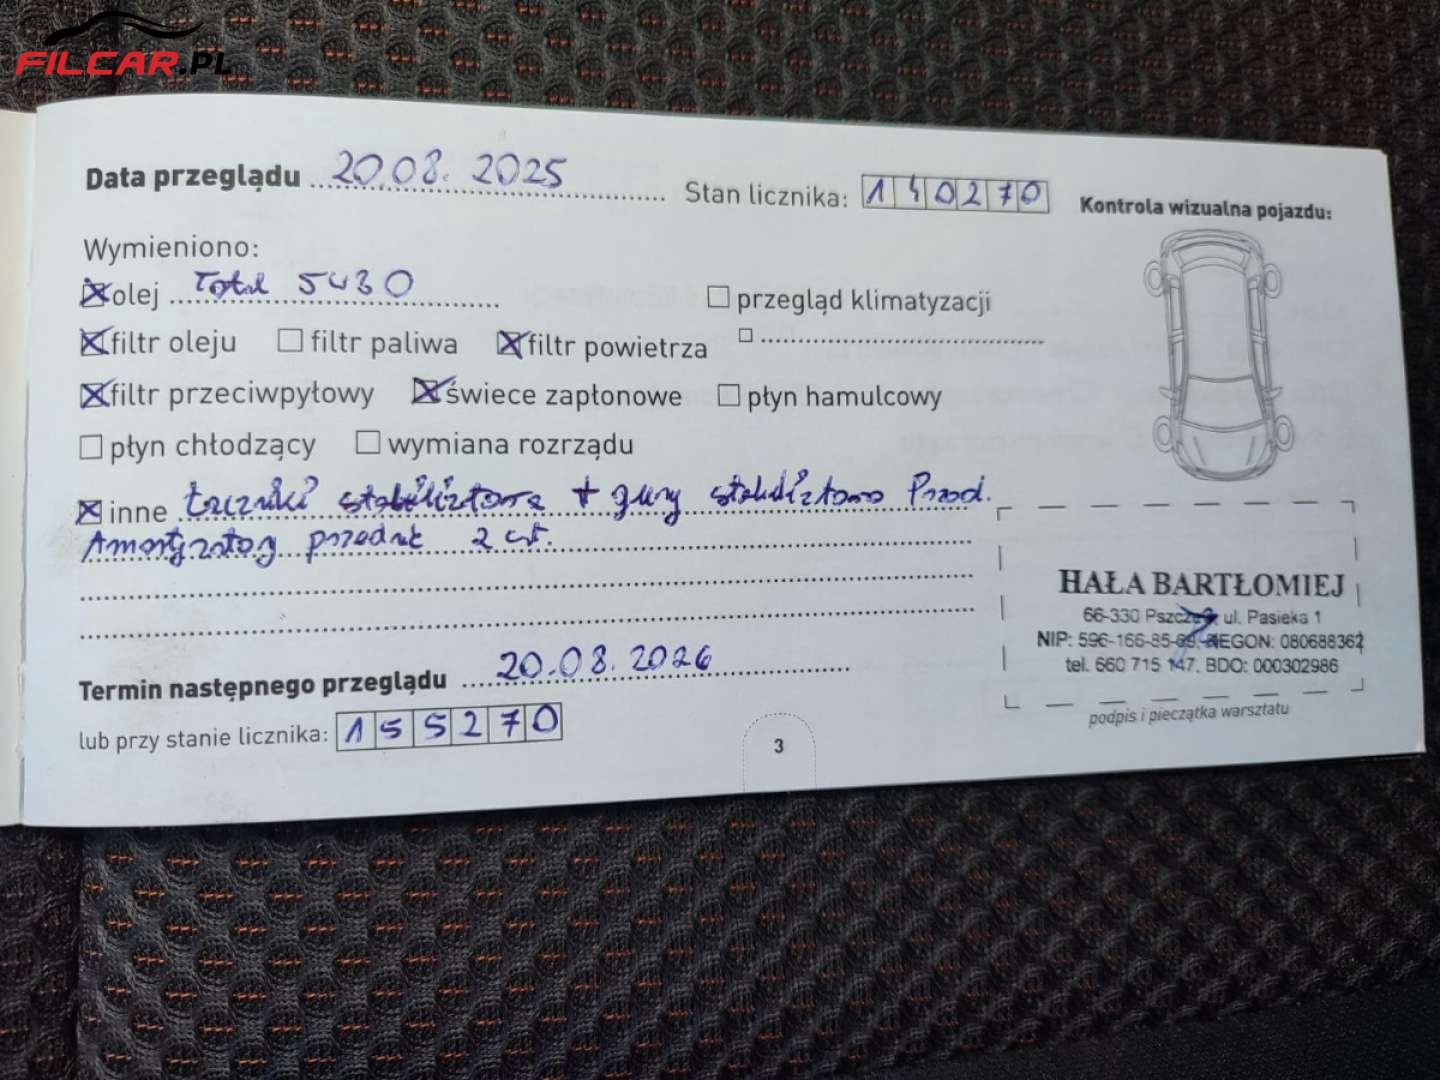 FILCAR.PL
Data przeglądu 20.08.2025
Stan licznika: 140270
Kontrola wizualna pojazdu:
Wymieniono:
olej Total 5W30
przegląd klimatyzacji
filtr oleju filtr paliwa filtr powietrza
filtr przeciwpyłowy świece zapłonowe płyn hamulcowy
płyn chłodzący wymiana rozrządu
inne Łączniki stabilizatora + gumy stabilizatora Przód.
Amortyzatory przednie 2 szt.
HAŁA BARTŁOMIEJ
66-330 ul. Pasieka 1
NIP: REGON: 080688362
tel. 660 715 147. BDO: 000302986
podpis i pieczątka warsztatu
Termin następnego przeglądu 20.08.2026
lub przy stanie licznika: 155270
3